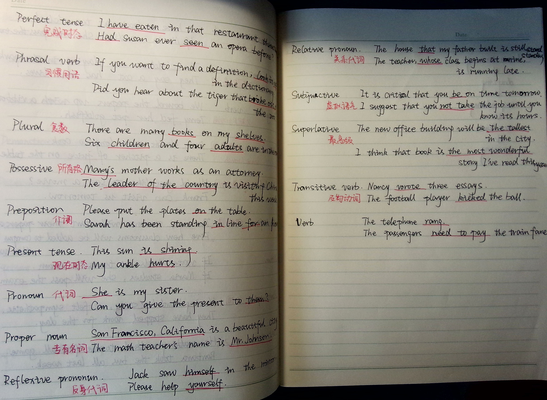 Perfect tense I have eaten in that restaurant
完成时态 Had Susan ever seen an opera before
Phrasal verb If you want to find a definition, look
in the dictionary
Did you hear about the tiger that
Plural 复数 There are many books on my shelves.
Six children and four adults are
Possessive 所有格 Mary's mother works as an attorney.
The leader of the country is visiting
this
Preposition Please put the plates on the table.
介词 Sarah has been standing in line for an
Present tense. This sun is shining.
现在时态 My ankle hurts.
Pronoun 代词 She is my sister.
Can you give the present to them?
Proper noun San Francisco, California is a beautiful
专有名词 The math teacher's name is Mr. Johnson.
Reflexive prononun. Jack saw himself in the
反身代词 Please help yourself.
Relative pronoun. The house that my father built is still
关系代词 The teacher whose class begins at
is running late.
Subjunctive It is critical that you be on time tomorrow.
虚拟语气 I suggest that you not take the job until you
know its hours.
Superlative The new office building will be the tallest
最高级 in the city
I think that book is the most wonderful
story I've read this year
Transitive verb. Nancy wrote three essays.
及物动词 The football player kicked the ball.
Verb The telephone rang.
The passengers need to pay the train fare